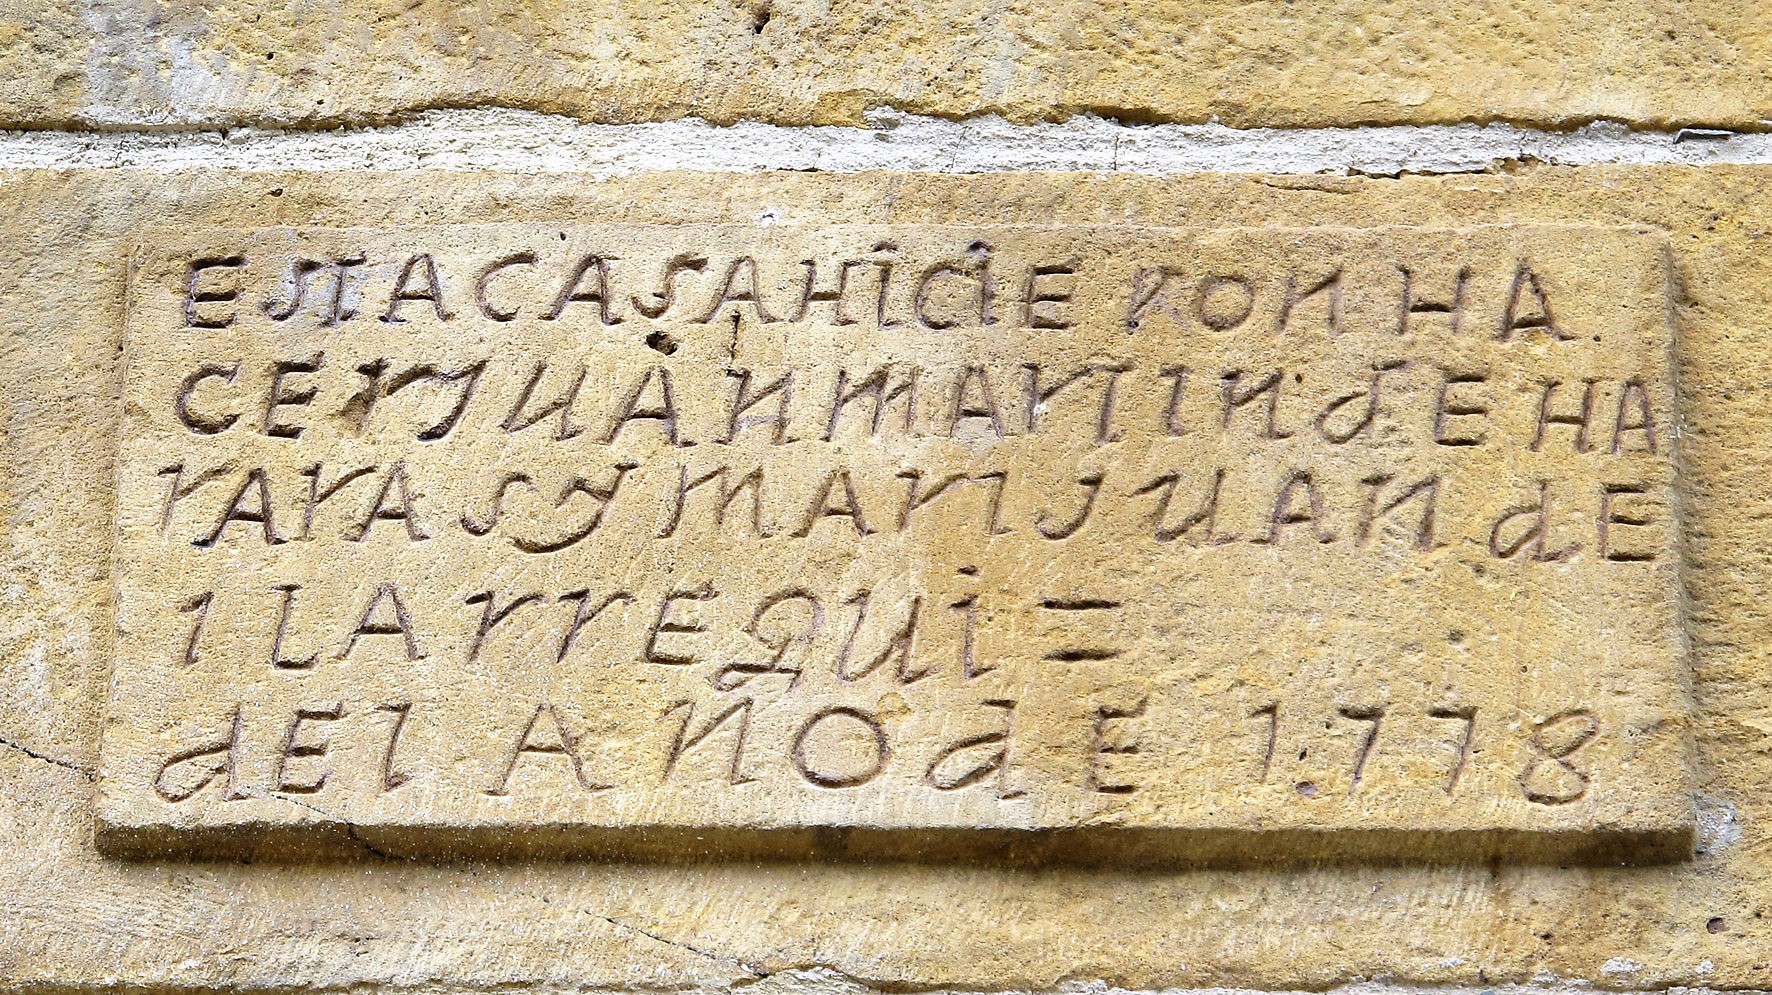 ESTA CASA HICIERON HA
CER JUAN MARTIN dE HA
RARAS Y MARI JUAN dE
ILARREGUI =
dEl AÑO dE 1778